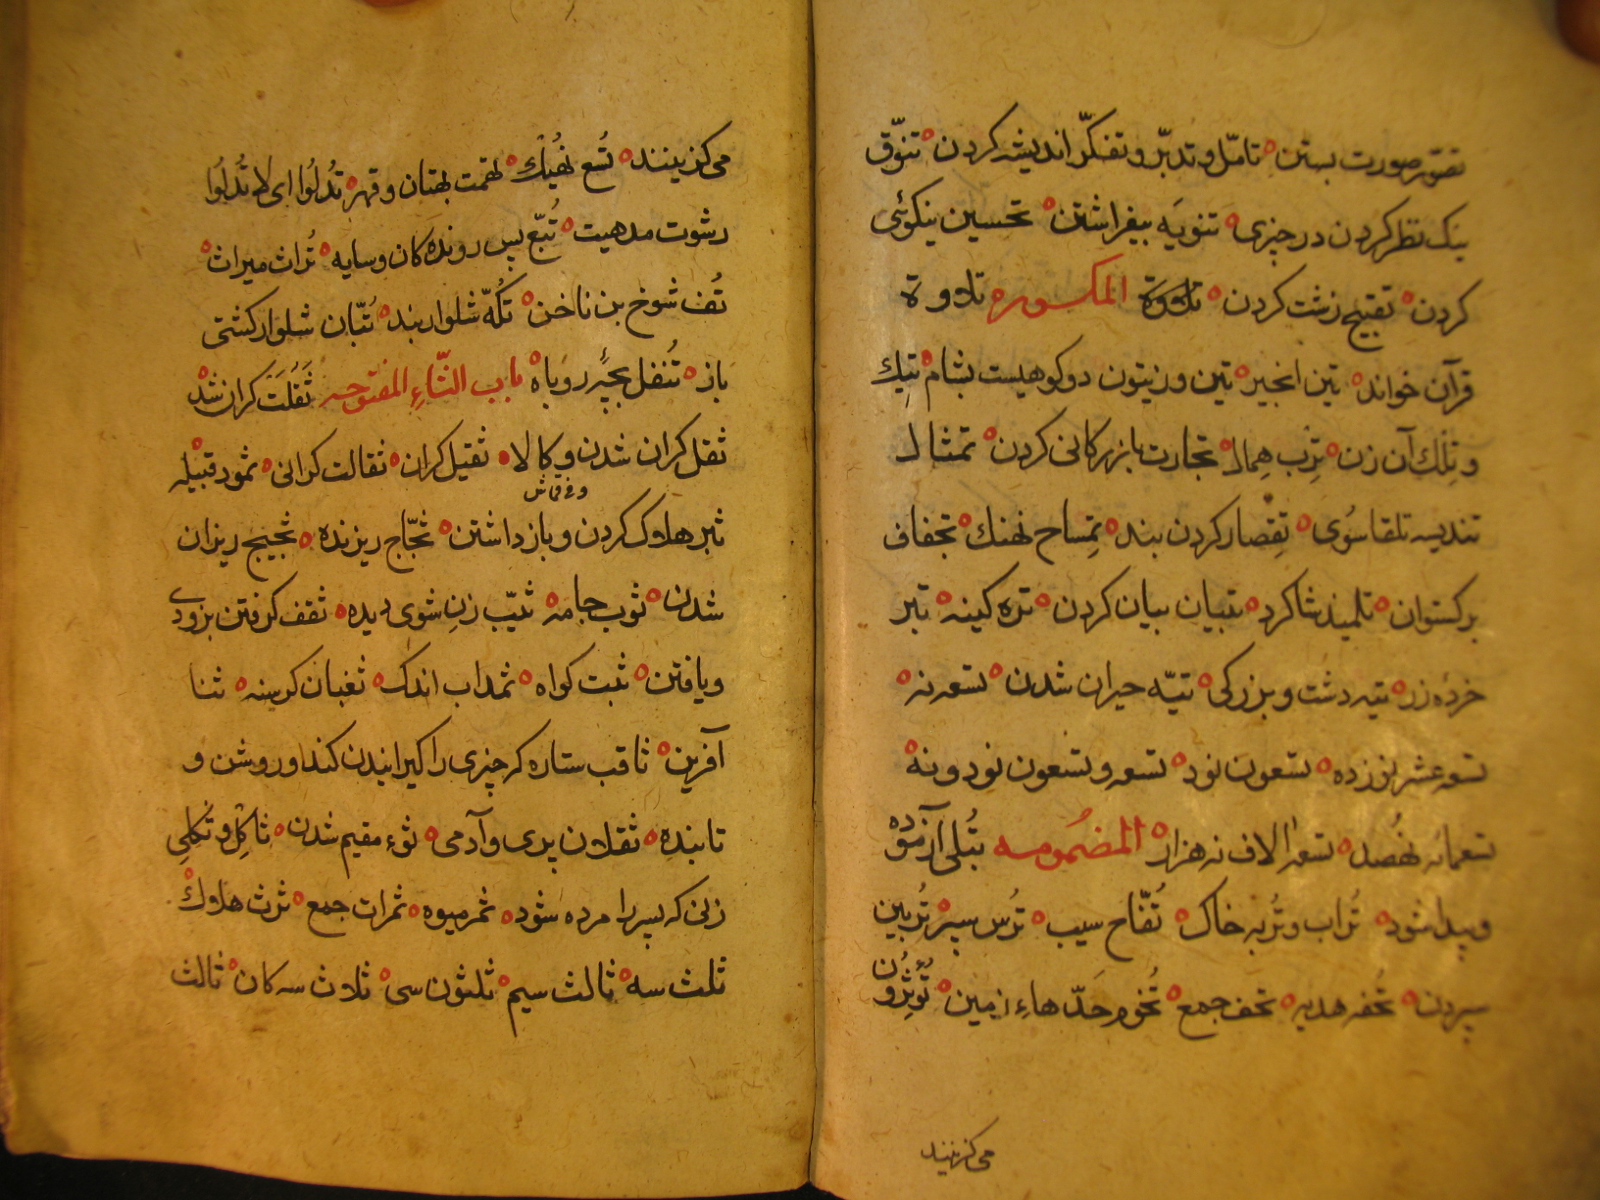 تصوّر صورت بستن ه تامّل و تدبّر و تفکّر اندیشه کردن ه تنوّق
نیک نظر کردن در چیزی ه تنویه بیفراشتن ه تحسین نیکوئی
کردن ه تقبیح زشت کردن ه تلاوة المکسوره تلاوة
قرآن خواند ه تین انجیر ه تین و زیتون دو کوهیست بشام ه تیک
و تِلک آن زن ه تِرب هِمال ه تجارت بازرکانی کردن ه تمثال
تندیسه تلقا سُوی ه تِقِصار کردن بند ه تِمساح نهنك ه تجفاف
برکستوان ه تلمیذ شاکرد ه تبیان بیان کردن ه تره کینه ه تبر
خردهٔ زر ه تیه دشت و بزرکی ه تیّه حیران شدن ه تسعه نه ه
تسعه عشر نوزده ه تسعون نود ه تسعه و تسعون نود و نه ه
تسعمائه نُهصد ه تسعة الاف نه هزار ه المضمومه تُبلی آزموده
و پیدا شود ه تُراب و تُربه خاک ه تُفّاح سیب ه تُرس سپر ه تُربین
سپردن ه تُحفه هدیه ه تحف جمع ه تُخوم حَدّهاءِ زمین ه تُؤثِرُونَ
می کزینند
می کزینند ه تُسع نُهیك ه تهمت بهتان و قهر ه تُدلُوا ای لا تُدلُوا
رشوت مدهیت ه تُبّع پس رونده کان و سایه ه تُراث میراث ه
تُف شوخ بن ناخن ه تکّه شلواربند ه تُبّان شلوار کشتی
باز ه تُتفل بچّهٔ روباه ه باب الثّاءِ المفتوحه ثَقُلَت کران شد ه
ثقل کران شدن و کالا ه ثقیل کران ه ثقالت کرانی ه ثمود قبیله
و قماش
ثبر هلاوک کردن و باز داشتن ه ثجّاج ریزنده ه ثجیج ریزان
شدن ه ثوب جامه ه ثیّب زنِ شوی دیده ه ثقف کرفتن بزودی
و یافتن ه ثبت کواه ه ثمد اب اندک ه ثغبان کرسنه ه ثنا
آفرین ه ثاقب ستاره که چیزی را کیرانیدن کند و روشن و
تابنده ه ثقلان پری و آدمی ه ثوء مقیم شدن ه ثاکِل و ثکلی
زنی که پسر را مرده شود ه ثمر میوه ه ثمرات جمع ه ثرث هلاوك ه
ثلث سه ه ثالث سیم ه ثلثون سی ه ثلاث سه کان ه ثالث